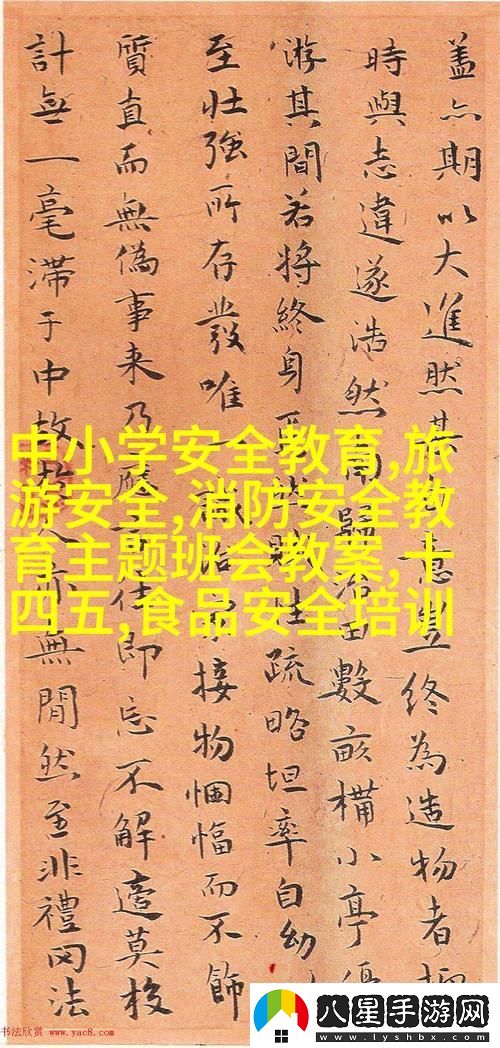 蓋亦期以大進然其意豈終為造物者
時與志違遂浩然歸田數畝構小亭優
游其間若將終身性疏略坦率自幼
至壯強所存發唯一接物悃愊而不飾
質直而無偽事来乃應即忘不解莫
計無一毫滯于中故人亦無閒然至非禮罔法
中小学安全教育,旅
游安全,消防安全教
育主题班会教案,十
四五,食品安全培训
书法欣赏 www.yac8.com
八星手游网
www.lyshbx.com